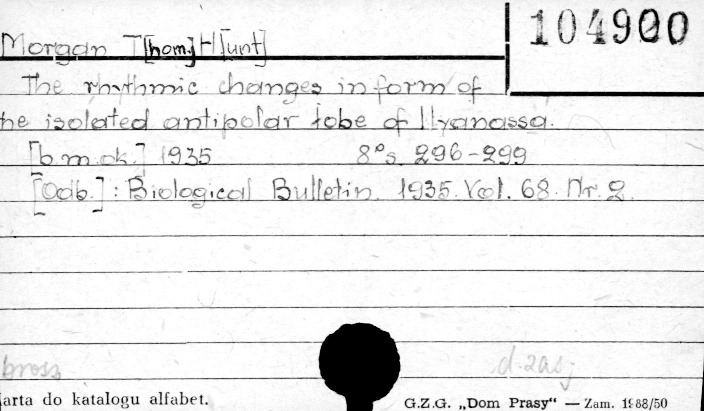 104900
Morgan T[hom.] H[unt]
The rhythmic changes in form of
he isolated antipolar lobe of Ilyanassa.
[b.m.ok.] 1935 8°s. 296-299
[Odb.]: Biological Bulletin. 1935. Vol. 68. Nr. 2.
brosz d. zas j
arta do katalogu alfabet. G.Z.G. „Dom Prasy“ — Zam. 1988/50